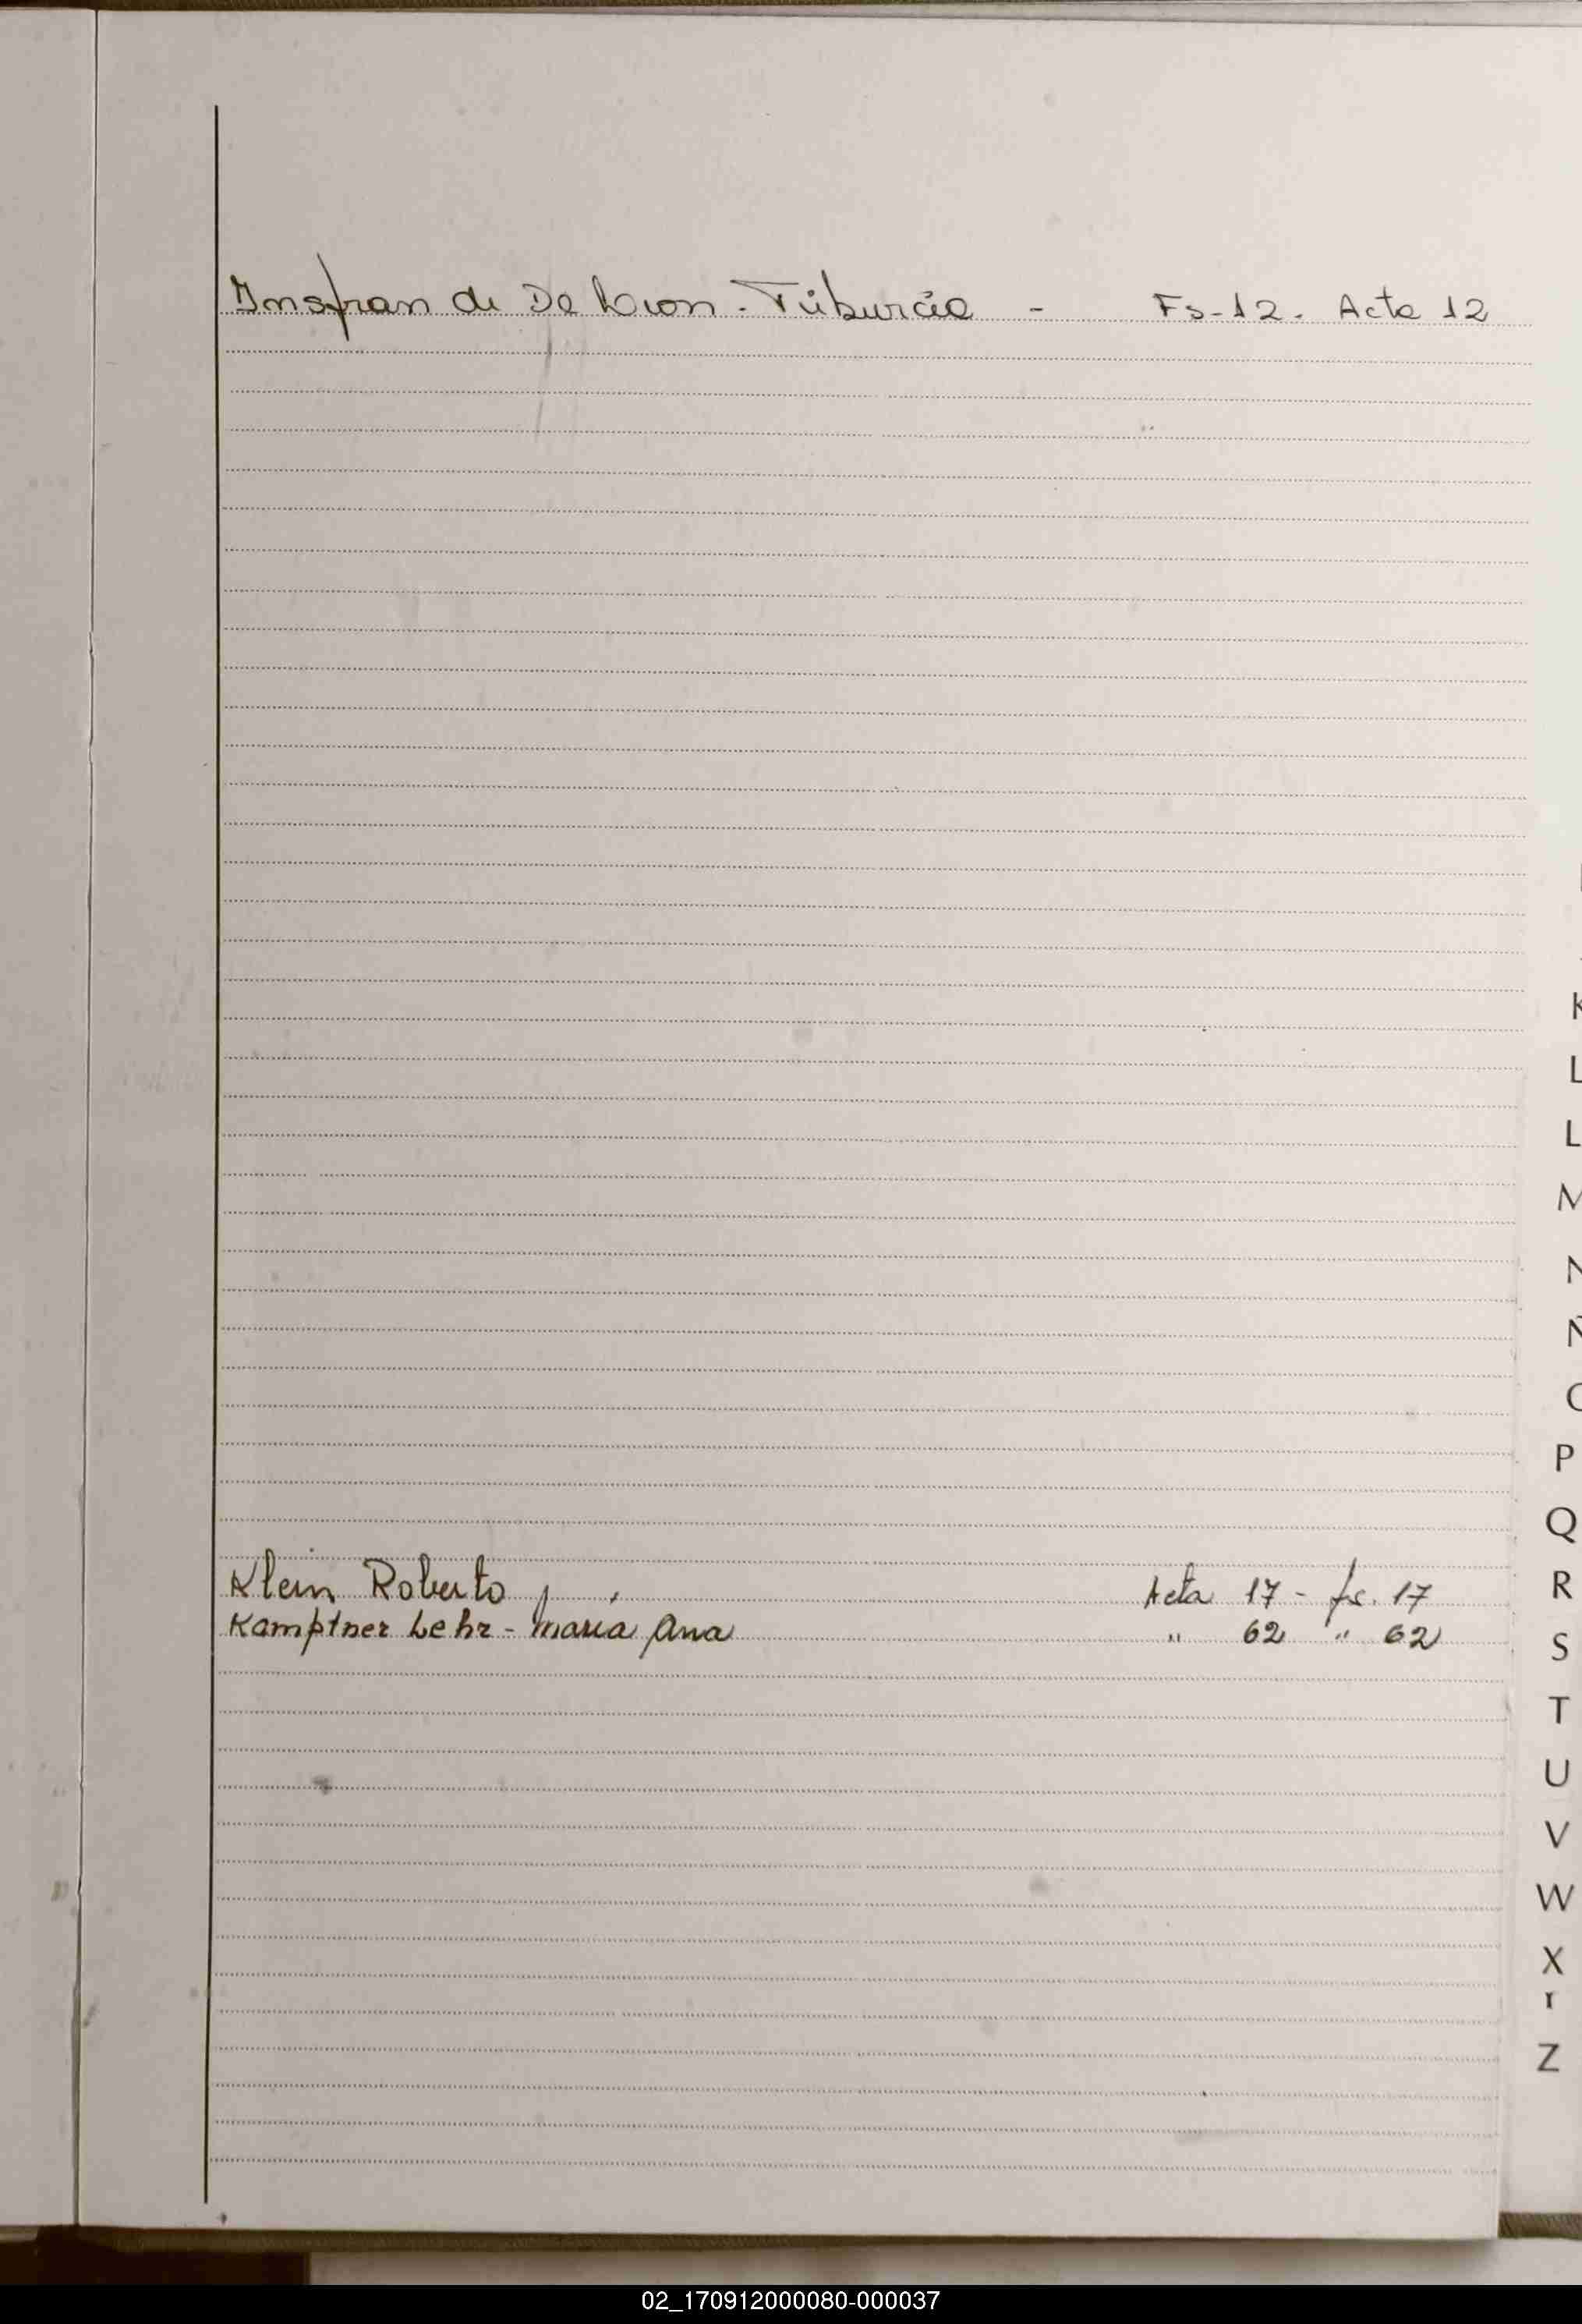 Insfran de De Leon. Tiburcia - Fs-12. Acta 12
Klein Roberto Acta 17 - fs. 17
Kamptner Lehr - María Ana " 62 " 62
K
L
L
M
N
Ñ
O
P
Q
R
S
T
U
V
W
X
Y
Z
02_170912000080-000037